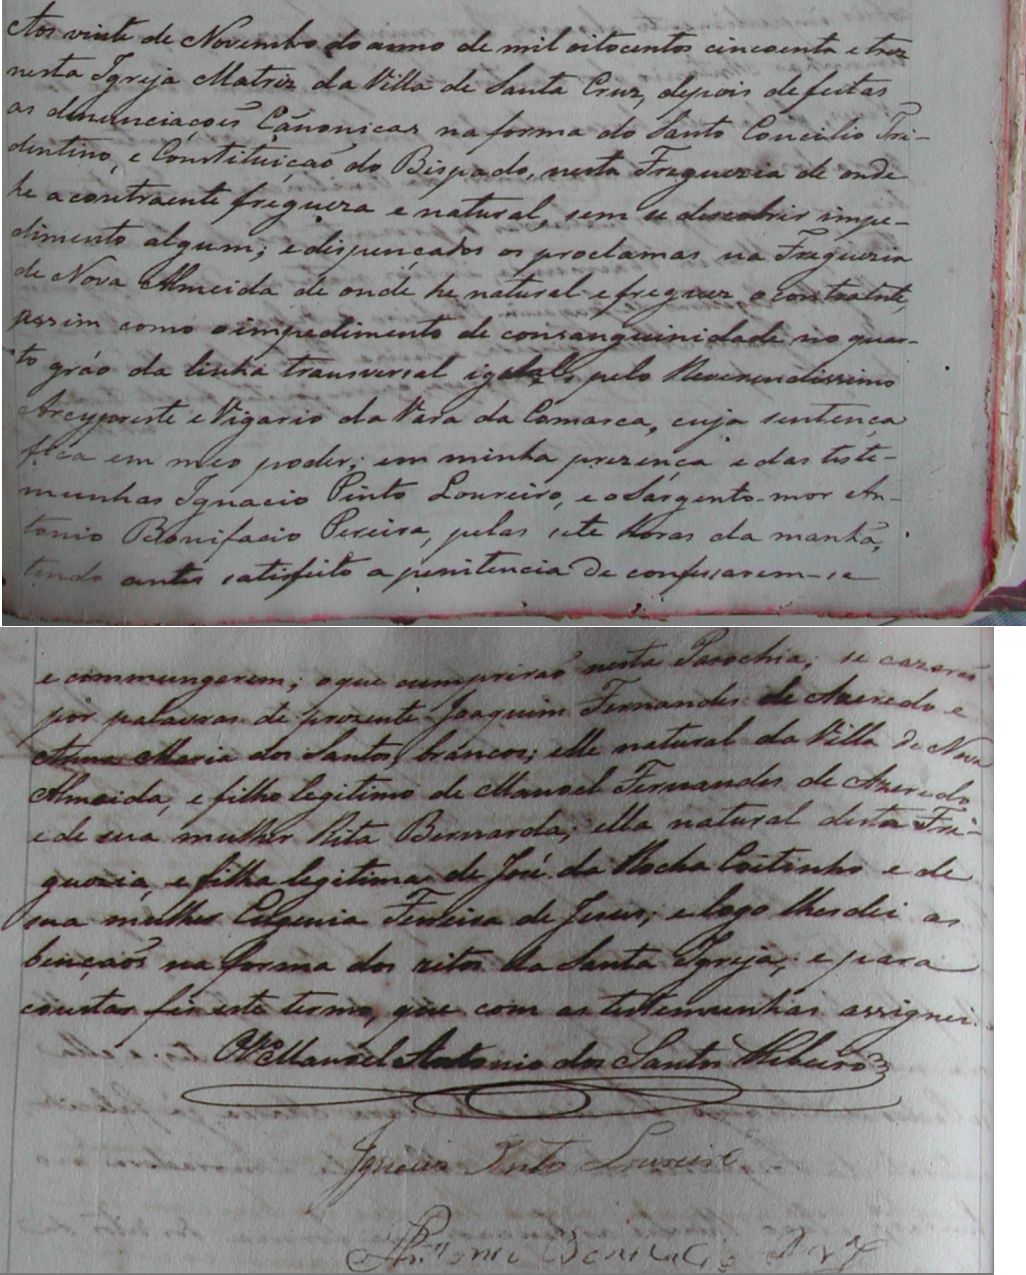 Aos vinte de Novembo do anno de mil oitocentos cincoenta e trez
nesta Igreja Matriz da Villa de Santa Cruz, depois de feitas
as denunciaçoẽs Canonicas na forma do Santo Concilio Tri-
dentino, e Constituiçaõ do Bispado, nesta Freguezia de onde
he a contraente fregueza e natural, sem se descobrir impe-
dimento algum; e dispençados os proclamas na Freguezia
de Nova Almeida de onde he natural e freguez o contraente,
assim como o impedimento de consanguinidade no quar-
to gráo da linha transversal igual, pelo Reverendissimo
Arcypreste e Vigario da Vara da Comarca, cuja sentença
fica em meo poder; em minha prezença e das teste-
munhas Ignacio Pinto Loureiro, e o Sargento-mor An-
tonio Bonifacio Pereira, pelas sete horas da manhã,
tendo antes satisfeito a penitencia de confessarem-se
e commungarem; o que cumpriraõ nesta Parochia; se cazaraõ
por palavras de prezente Joaquim Fernandes de Azeredo e
Anna Maria dos Santos, brancos; elle natural da Villa de Nova
Almeida, e filho legitimo de Manoel Fernandes de Azeredo
e de sua mulher Rita Bernarda; ella natural desta Fre-
guezia, e filha legitima de José da Rocha Coitinho e de
sua mulher Eugenia Ferreira de Jesus; e logo lhes dei as
bençaõs na forma dos ritos da Santa Igreja; e para
constar fiz este termo, que com as testemunhas assignei.
O Vigº Manoel Antonio dos Santos Ribeiro
Ignacio Pinto Loureiro
Antonio Bonifacio